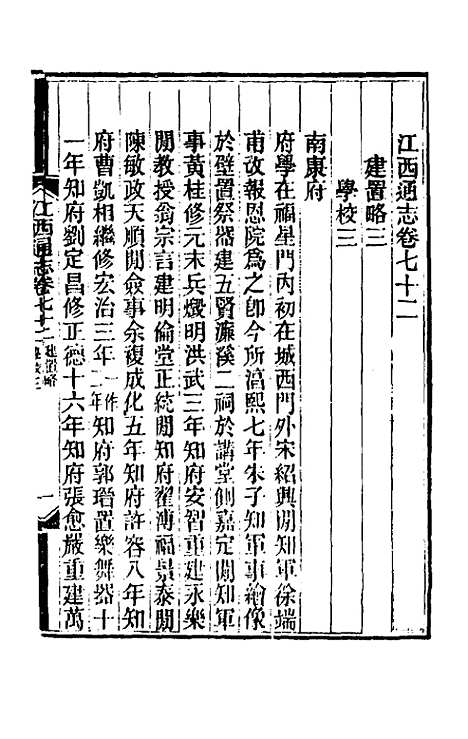 江西通志卷七十二
建置略三
學校三
南康府
府學在福星門內初在城西門外宋紹興閒知軍徐端
甫改報恩院爲之卽今所淳熙七年朱子知軍事繪像
於壁置祭器建五賢濂溪二祠於講堂側嘉定閒知軍
事黃桂修元末兵燬明洪武三年知府安智重建永樂
閒敎授翁宗言建明倫堂正統閒知府翟溥福景泰閒
陳敏政天順閒僉事余復成化五年知府許容八年知
府曹凱相繼修宏治三年一作二年知府郭瑨置樂舞器十
一年知府劉定昌修正德十六年知府張愈嚴重建萬
江西通志卷七十二 建置略 學校三 一